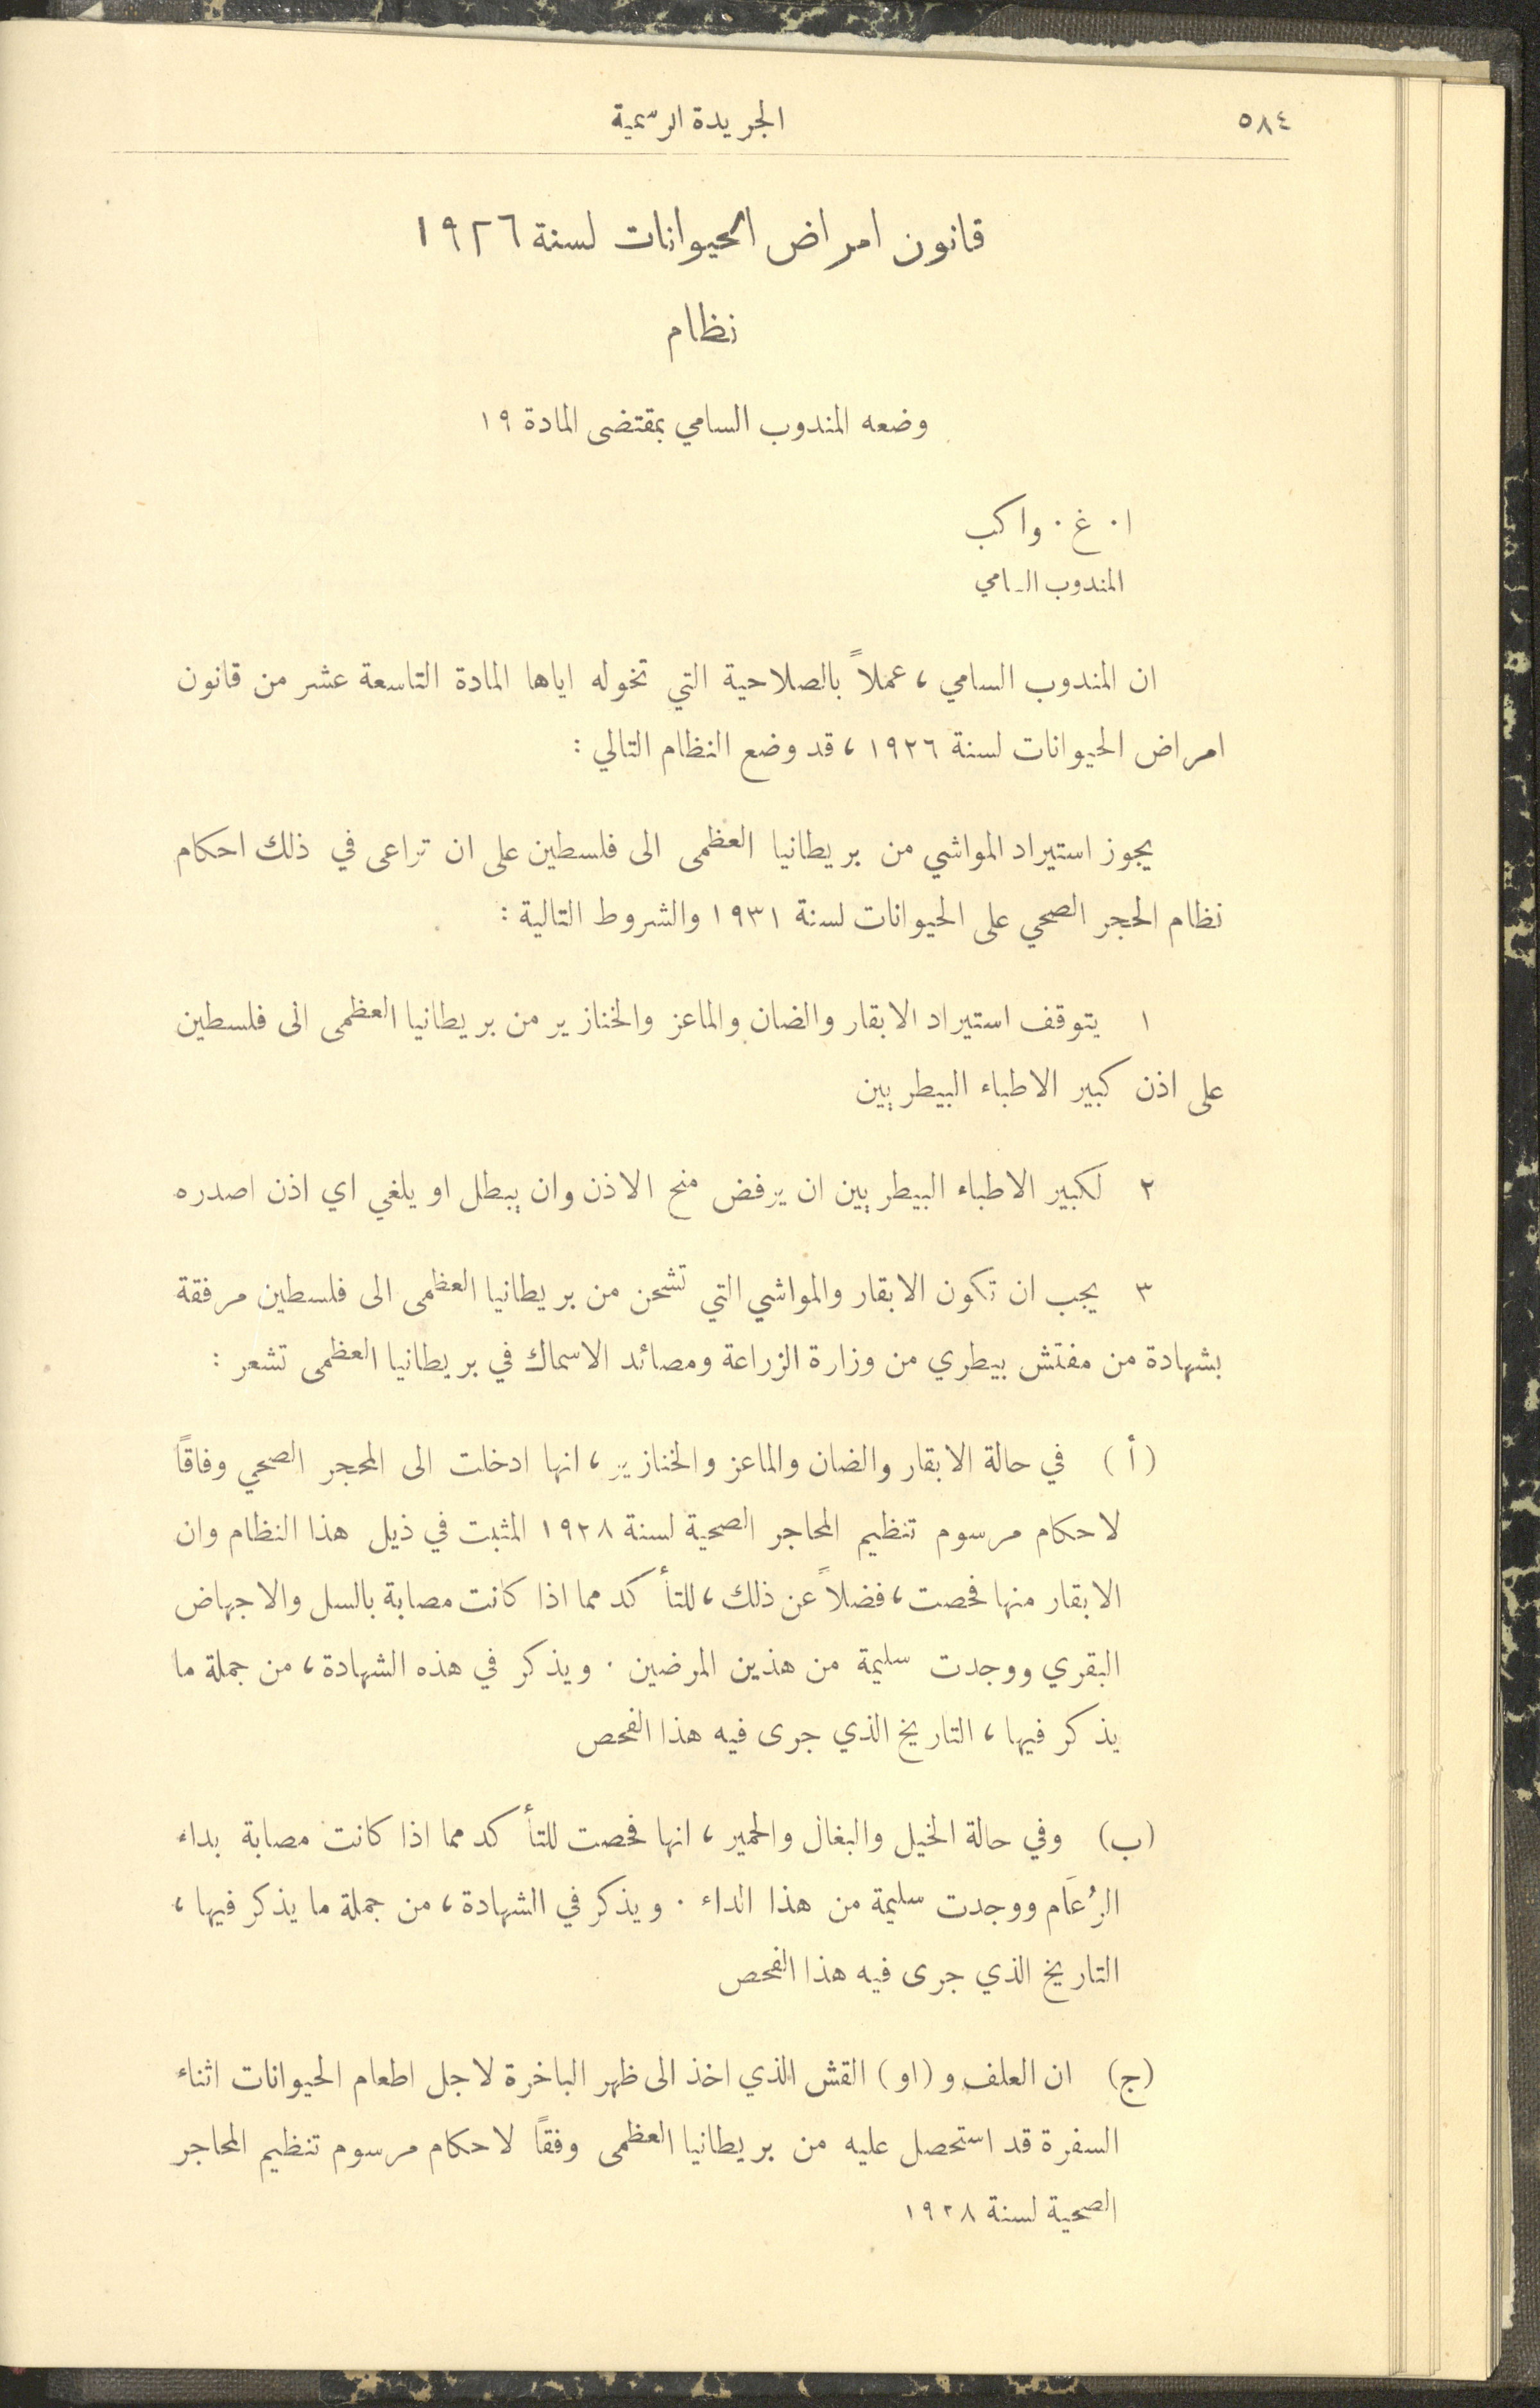 ٥٨٤
الجريدة الرسمية
قانون امراض الحيوانات لسنة ١٩٢٦
نظام
وضعه المندوب السامي بمقتضى المادة ١٩
ا. غ. واكب
المندوب السامي
ان المندوب السامي، عملاً بالصلاحية التي تخوله اياها المادة التاسعة عشر من قانون
امراض الحيوانات لسنة ١٩٢٦، قد وضع النظام التالي :
يجوز استيراد المواشي من بريطانيا العظمى الى فلسطين على ان تراعى في ذلك احكام
نظام الحجر الصحي على الحيوانات لسنة ١٩٣١ والشروط التالية :
١ يتوقف استيراد الابقار والضان والماعز والخنازير من بريطانيا العظمى الى فلسطين
على اذن كبير الاطباء البيطريين
٢ لكبير الاطباء البيطريين ان يرفض منح الاذن وان يبطل او يلغي اي اذن اصدره
٣ يجب ان تكون الابقار والمواشي التي تشحن من بريطانيا العظمى الى فلسطين مرفقة
بشهادة من مفتش بيطري من وزارة الزراعة ومصائد الاسماك في بريطانيا العظمى تشعر :
(أ) في حالة الابقار والضان والماعز والخنازير، انها ادخلت الى المحجر الصحي وفاقاً
لاحكام مرسوم تنظيم المحاجر الصحية لسنة ١٩٢٨ المثبت في ذيل هذا النظام وان
الابقار منها فحصت، فضلاً عن ذلك، للتأكد مما اذا كانت مصابة بالسل والاجهاض
البقري ووجدت سليمة من هذين المرضين. ويذكر في هذه الشهادة، من جملة ما
يذكر فيها، التاريخ الذي جرى فيه هذا الفحص
(ب) وفي حالة الخيل والبغال والحمير، انها فحصت للتأكد مما اذا كانت مصابة بداء
الرُعَام ووجدت سليمة من هذا الداء. ويذكر في الشهادة، من جملة ما يذكر فيها،
التاريخ الذي جرى فيه هذا الفحص
(ج) ان العلف و (او) القش الذي اخذ الى ظهر الباخرة لاجل اطعام الحيوانات اثناء
السفرة قد استحصل عليه من بريطانيا العظمى وفقاً لاحكام مرسوم تنظيم المحاجر
الصحية لسنة ١٩٢٨